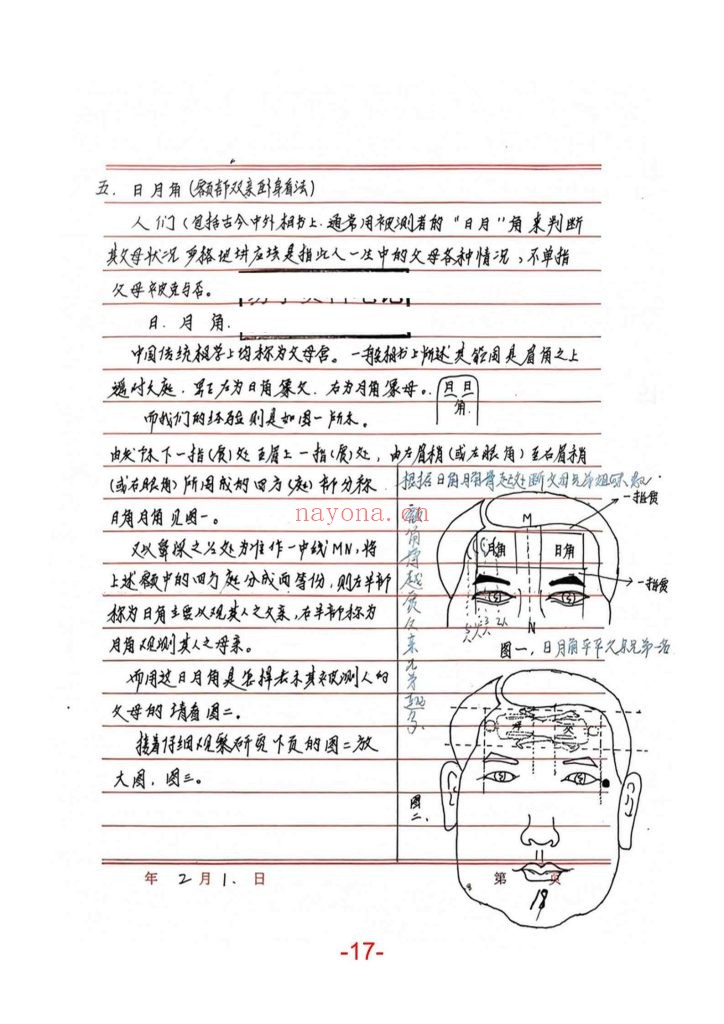 五. 日月角(额部双亲卧身看法)
人们(包括古今中外相书上.通常用被测者的"日月"角来判断
其父母状况 严格地讲应该是指此人一生中的父母各种情况、不单指
父母被克与否。
日. 月 角.
中国传统相学上均称为父母宫。一般相书上所述其范围是眉角之上
通对天庭. 左为日角象父. 右为月角象母。
日 日
角.
而我们的经验则是如图一所示。
由发际下一指(页)处至眉上一指(页)处, 由左眉稍(或左眼角)至右眉稍
(或右眼角)所围成的四方(庭)部分称
日角月角见图一。
又以鼻梁之沿处为准作一中线MN, 将
上述额中的四方庭分成两等份, 则左半部
称为日角主要以观其人之父亲, 右半部称为
月角观测其人之母亲。
而用这日月角是怎样去求其被测人的
父母的请看图二。
接着仔细观察研究下页的图二放
大图. 图三。
根据日角月角骨起处断父母兄弟姐妹
一指
M
月角 日角
一指
N
图一. 日月角平平父兄弟一
图二.
年 2 月 1. 日
第 页
18
nayona.cn
-17-